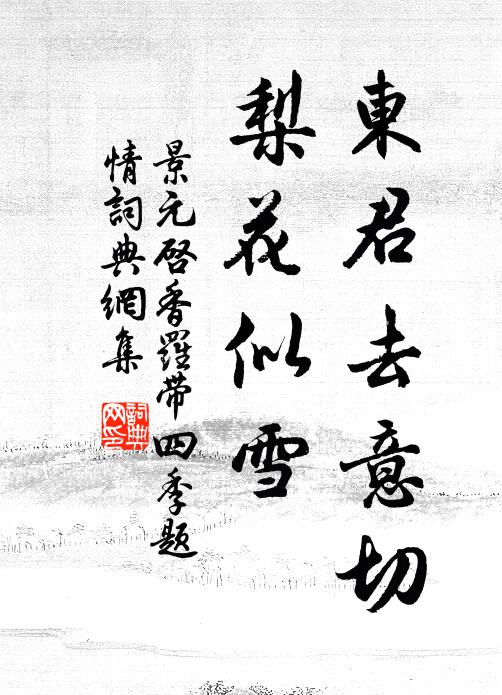 東君去意切
梨花似雪
景元啓香羅带四季題
情詞典網集
詞典网印